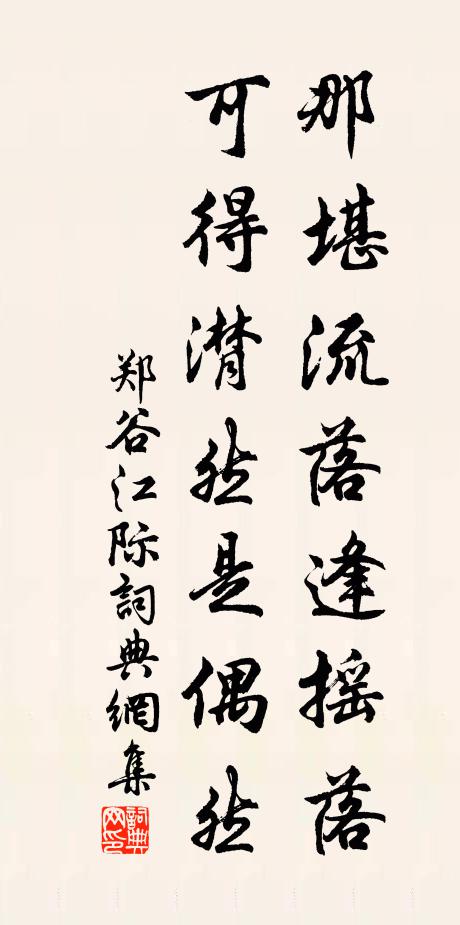 那堪流落逢摇落
可得潸然是偶然
郑谷江际词典網集
詞典网印